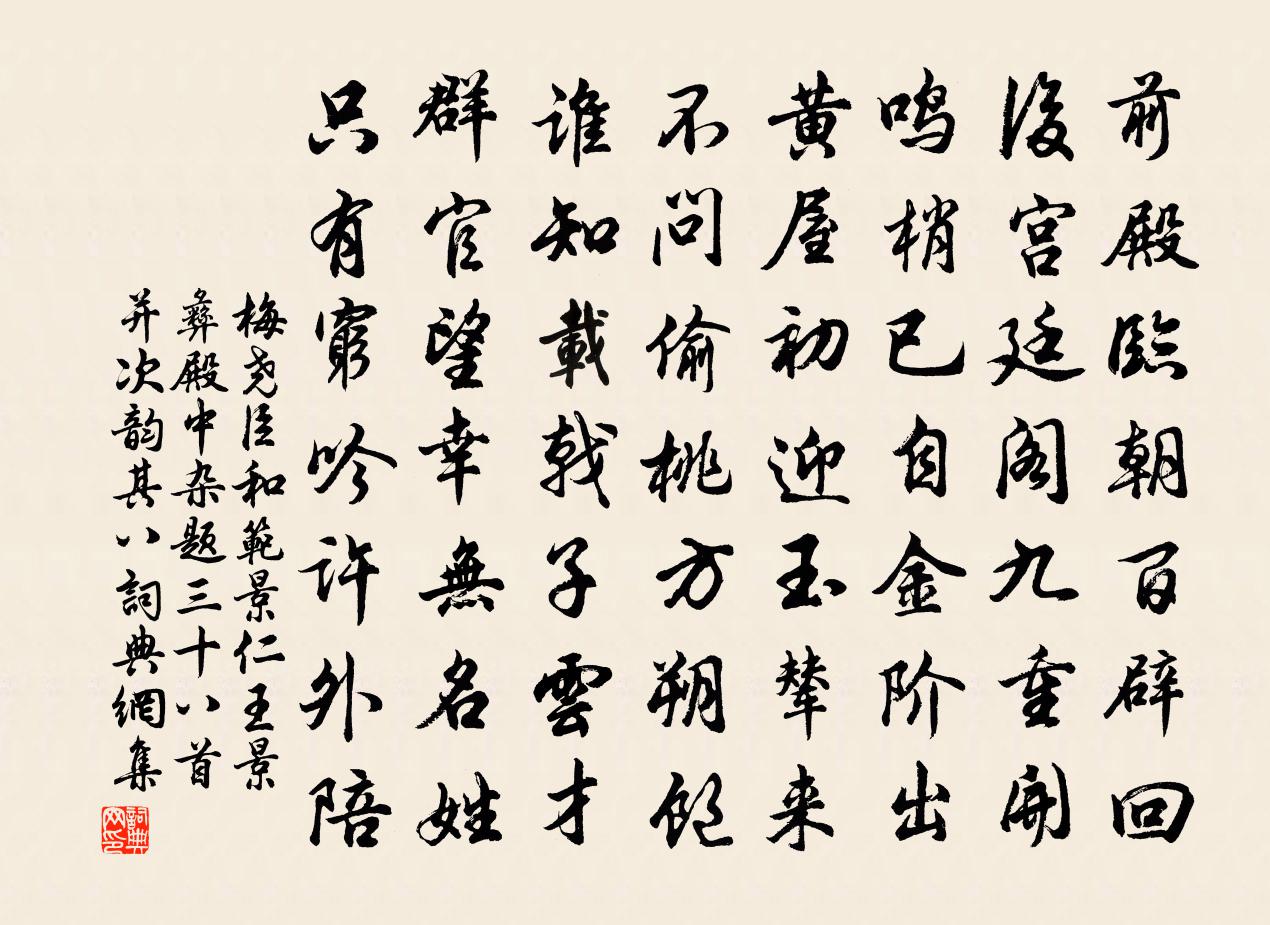 前殿臨朝百辟回
後宫廷阁九重開
鸣梢已自金阶出
黄屋初迎玉辇来
不問偷桃方朔饱
谁知載戟子雲才
群官望幸無名姓
只有窮吟许外陪
梅尧臣和範景仁王景
彝殿中杂题三十八首
并次韵其八詞典網集
詞典
网印